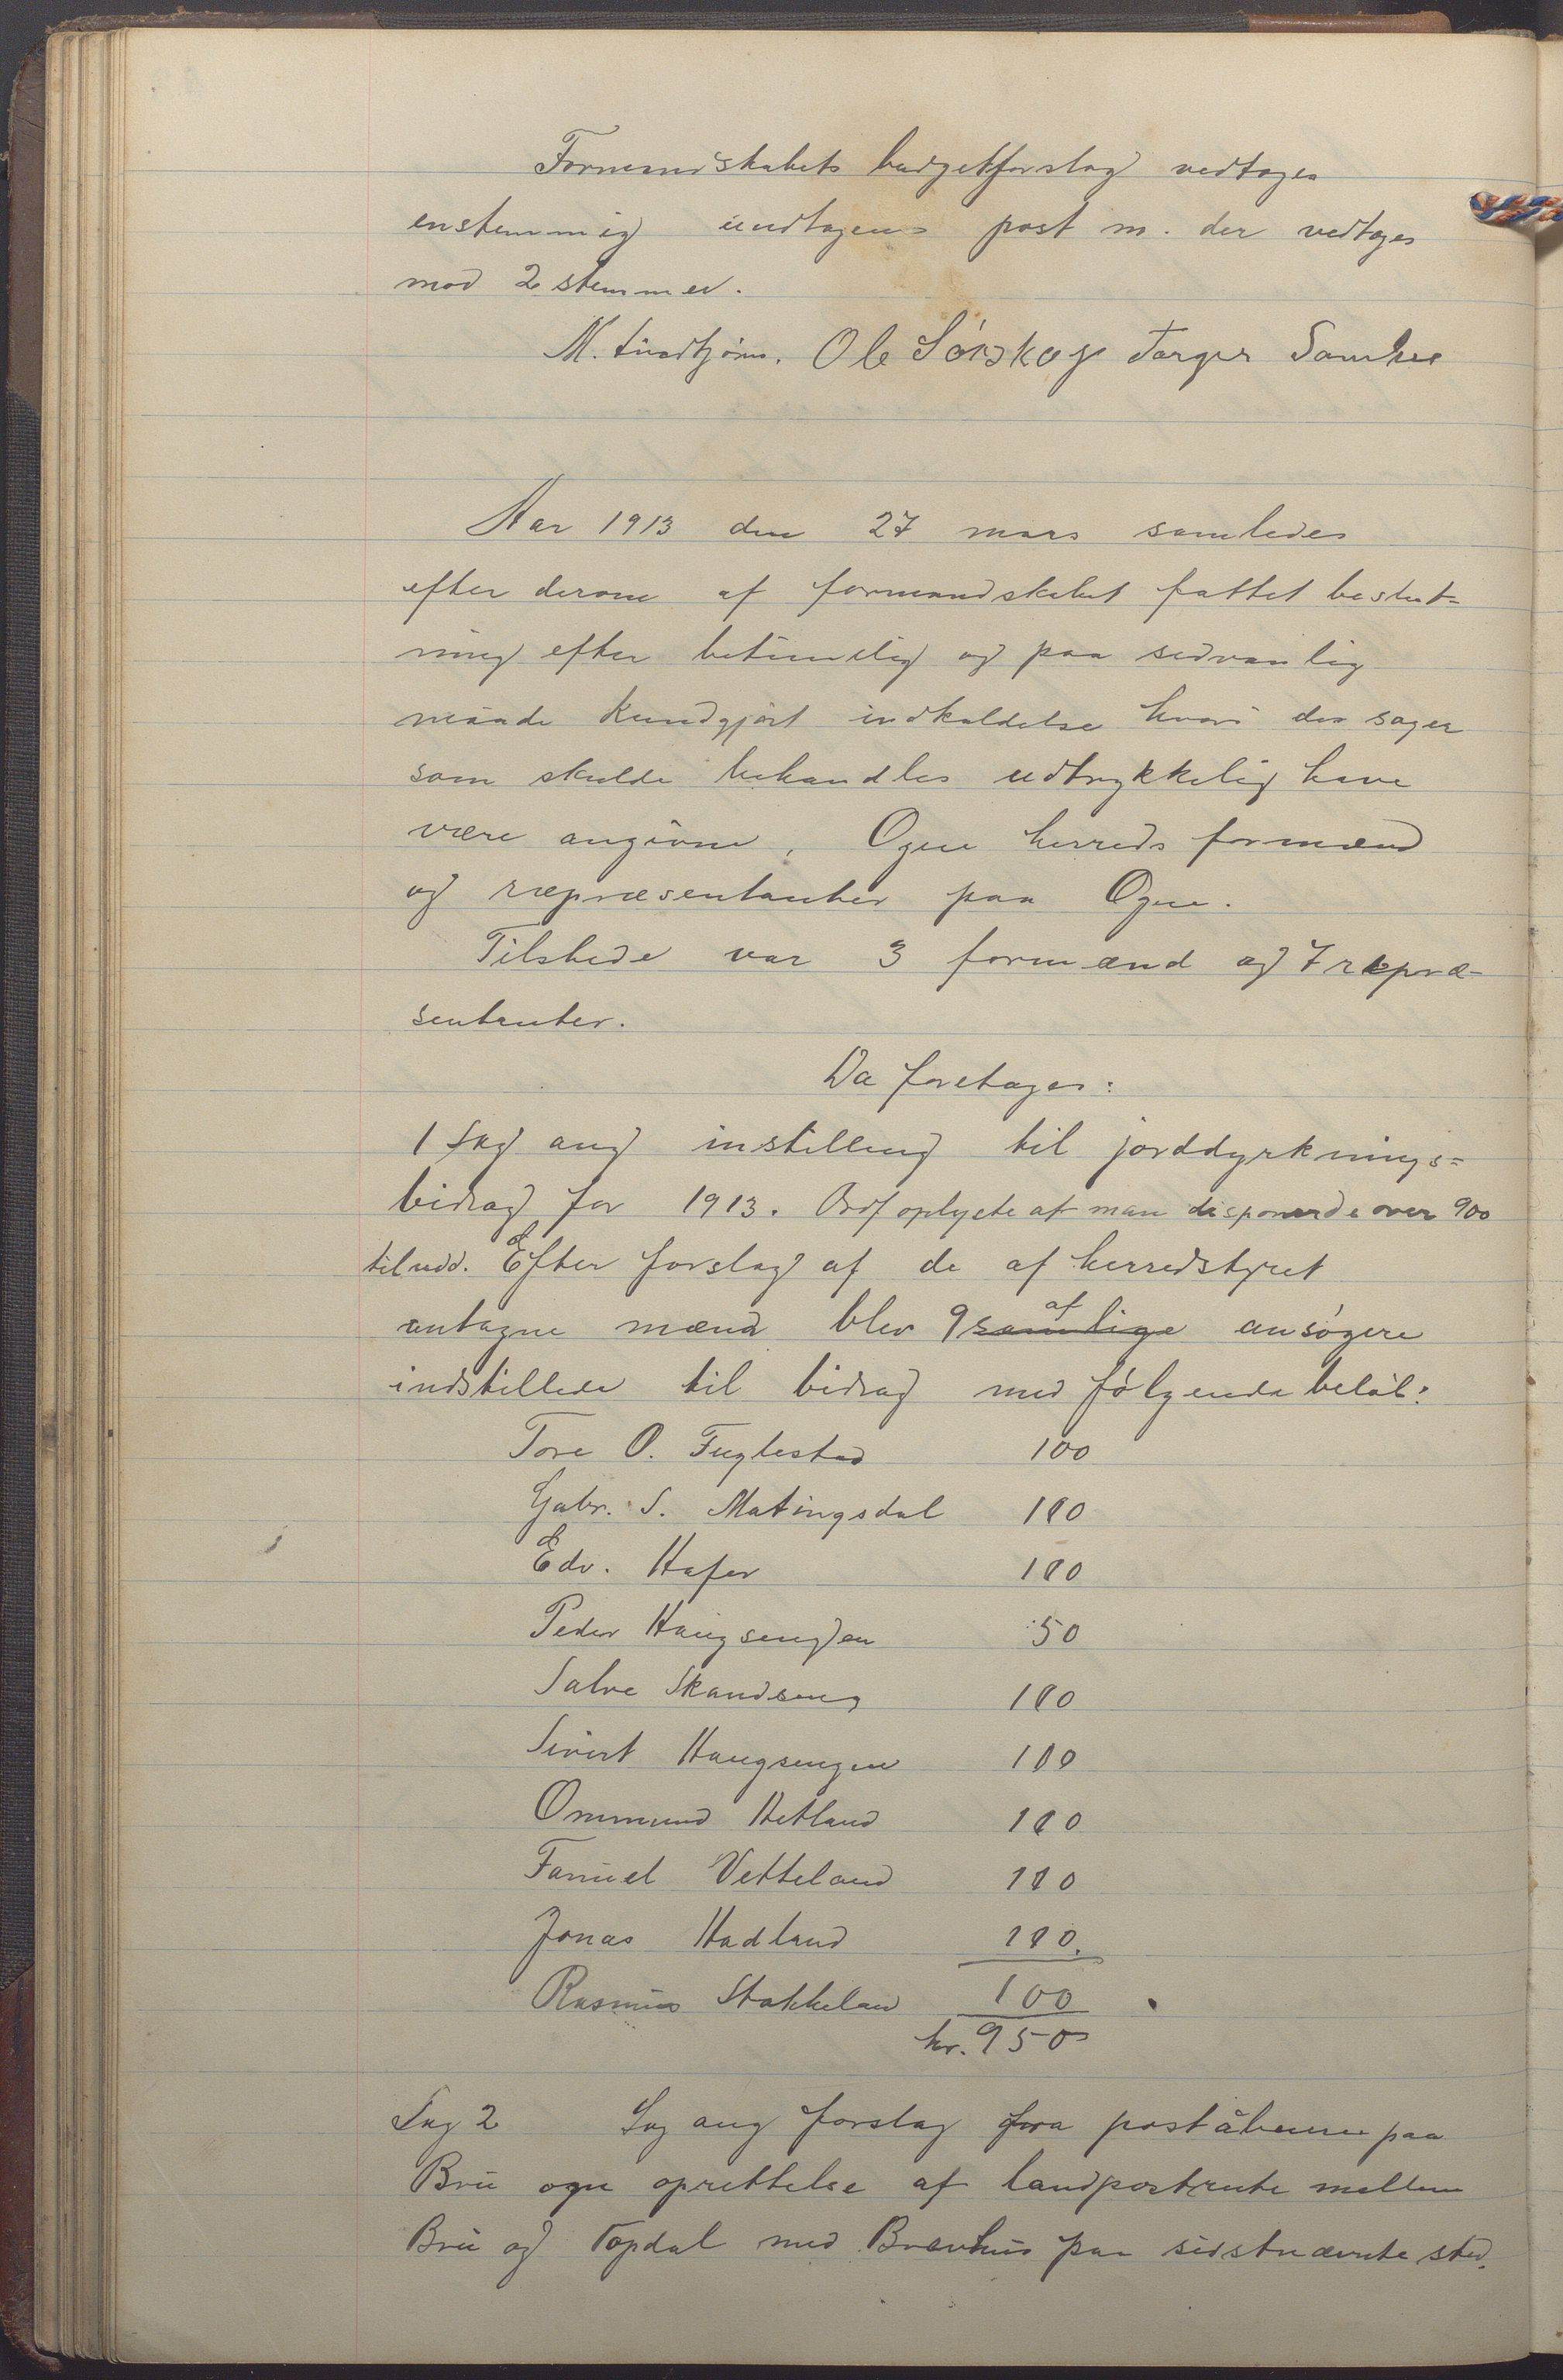 Formandskabets budgetforslag vedtages
enstemmig undtagens post m. der vedtages
mod 2 stemmer.
Ole Sörskog Torger
Aar 1913 den 27 mars samledes
efter derom af formandskabet fattet beslut=
ning efter betimelig og paa sedvanlig
maade kundgjört indkaldelse hvori de sager
som skulde behandles udtrykkelig have
være angivne, Ogne herreds formænd
og ræpræsentanter paa Ogne.
Tilstede var 3 formænd og 7 repræ-
sentanter.
Da foretages:
1 Sag ang instilling til jorddyrknings=
bidrag for 1913. Ordf oplyste at man disponerde over 900
til udd. Efter forslag af de af herredstyret
antagne mænd blev 9 samtlige af ansögere
indstillede til bidrag med fölgende belöb:
Tore O. Fuglestad 100
Gabr. S. Matingsdal 100
Edv. Hafer 100
Peder Haugsengen 50
Salve Skandseng 100
Sivert Haugsengen 100
Ommund Hetland 100
Famuel Vetteland 100
Jonas Hadland 100.
Rasmus Stokkelan 100
kr. 950
Sag 2 Sag ang forslag fra poståbneren paa
Bru ogn oprettelse af landpostrute mellem
Bru og Topdal med Brævhus paa sidstnævnte sted.